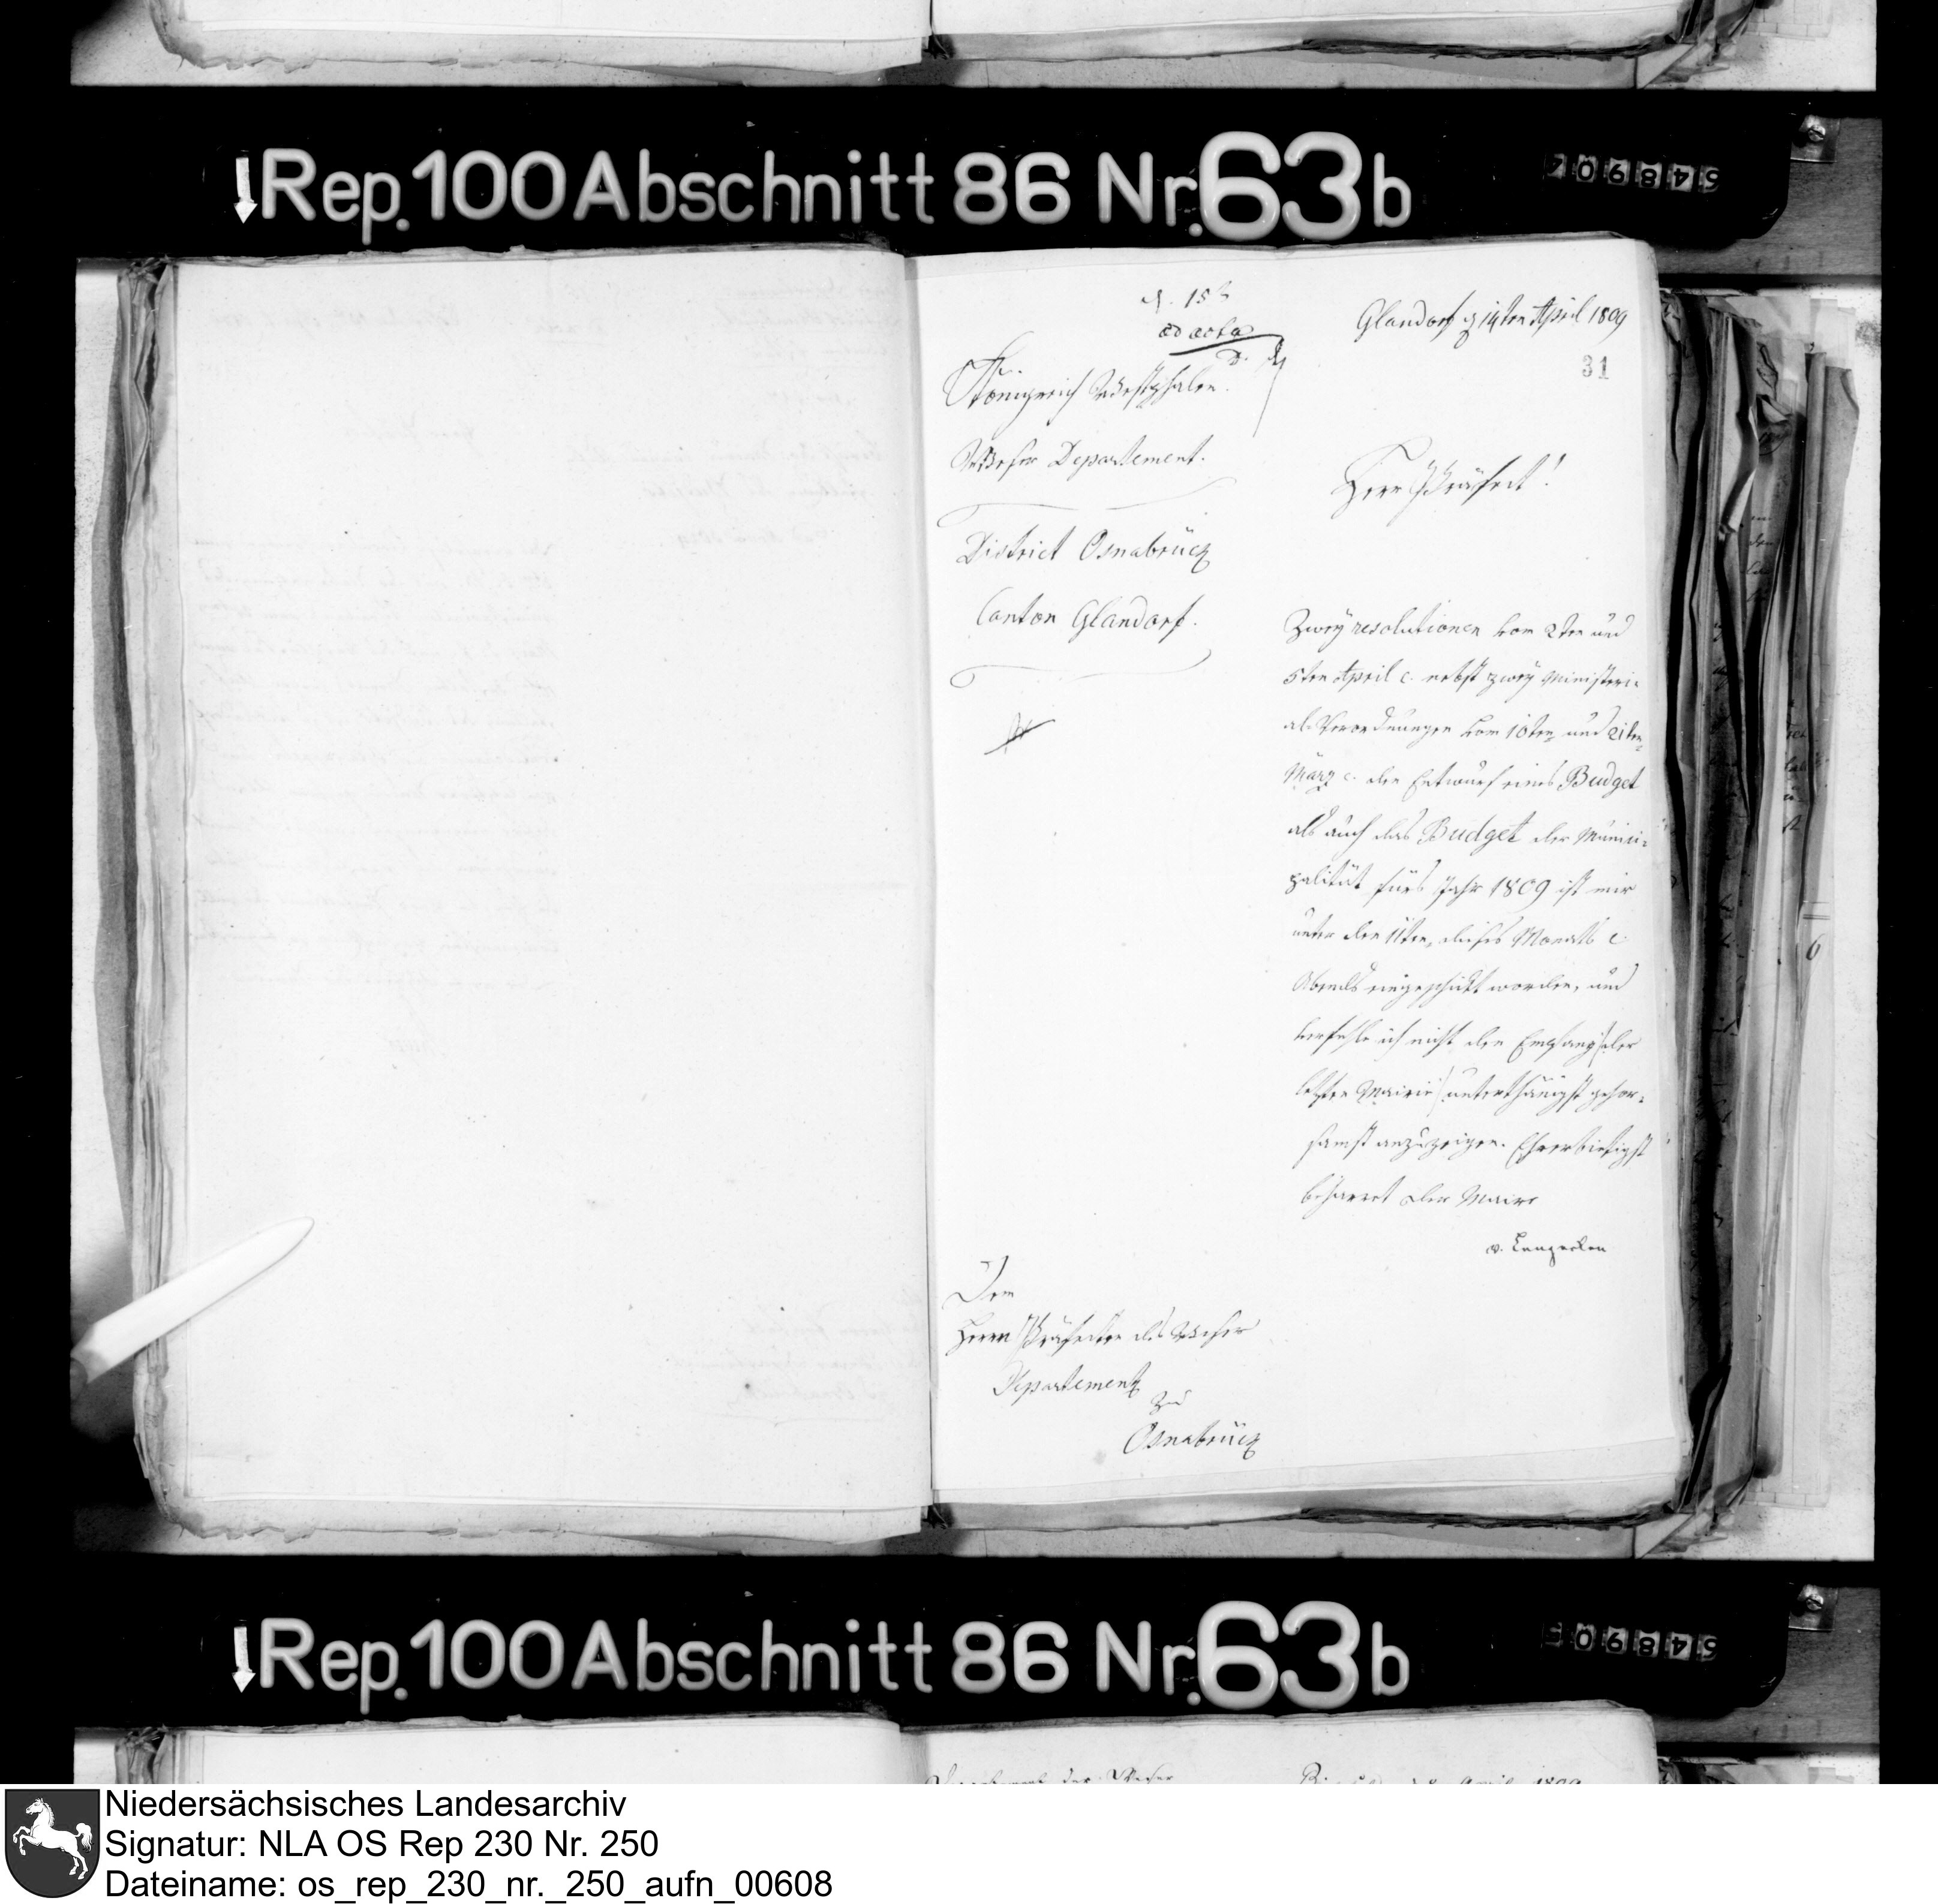 Rep. 100 Abschnitt 86 Nr. 63b
ad acta
Glandorf d 14ten April 1809
31
Königreich Westphalen.
Weser Departement.
Herr Präfect!
District Osnabrück
Canton Glandorf.
Zwey resolutionen vom 2ten und
5ten April c. nebst zwey Ministeri-
al Verordnungen vom 10ten und 21ten
März c. den Entwurf eines Budget
als auch das Budget der Munici-
palität fürs Jahr 1809 ist mir
unter den 11ten dieses Monats c
Abends eingeschickt worden, und
verfehle ich nicht den Empfang der
letzten Mairie unterthänigst gehor-
samst anzuzeigen. Ehrerbietigst
beharret der Maire
v. Lengerken
Dem
Herrn Präfecten des Weser
Departement
zu
Osnabrück
Rep. 100 Abschnitt 86 Nr. 63b
Niedersächsisches Landesarchiv
Signatur: NLA OS Rep 230 Nr. 250
Dateiname: os_rep_230_nr._250_aufn_00608